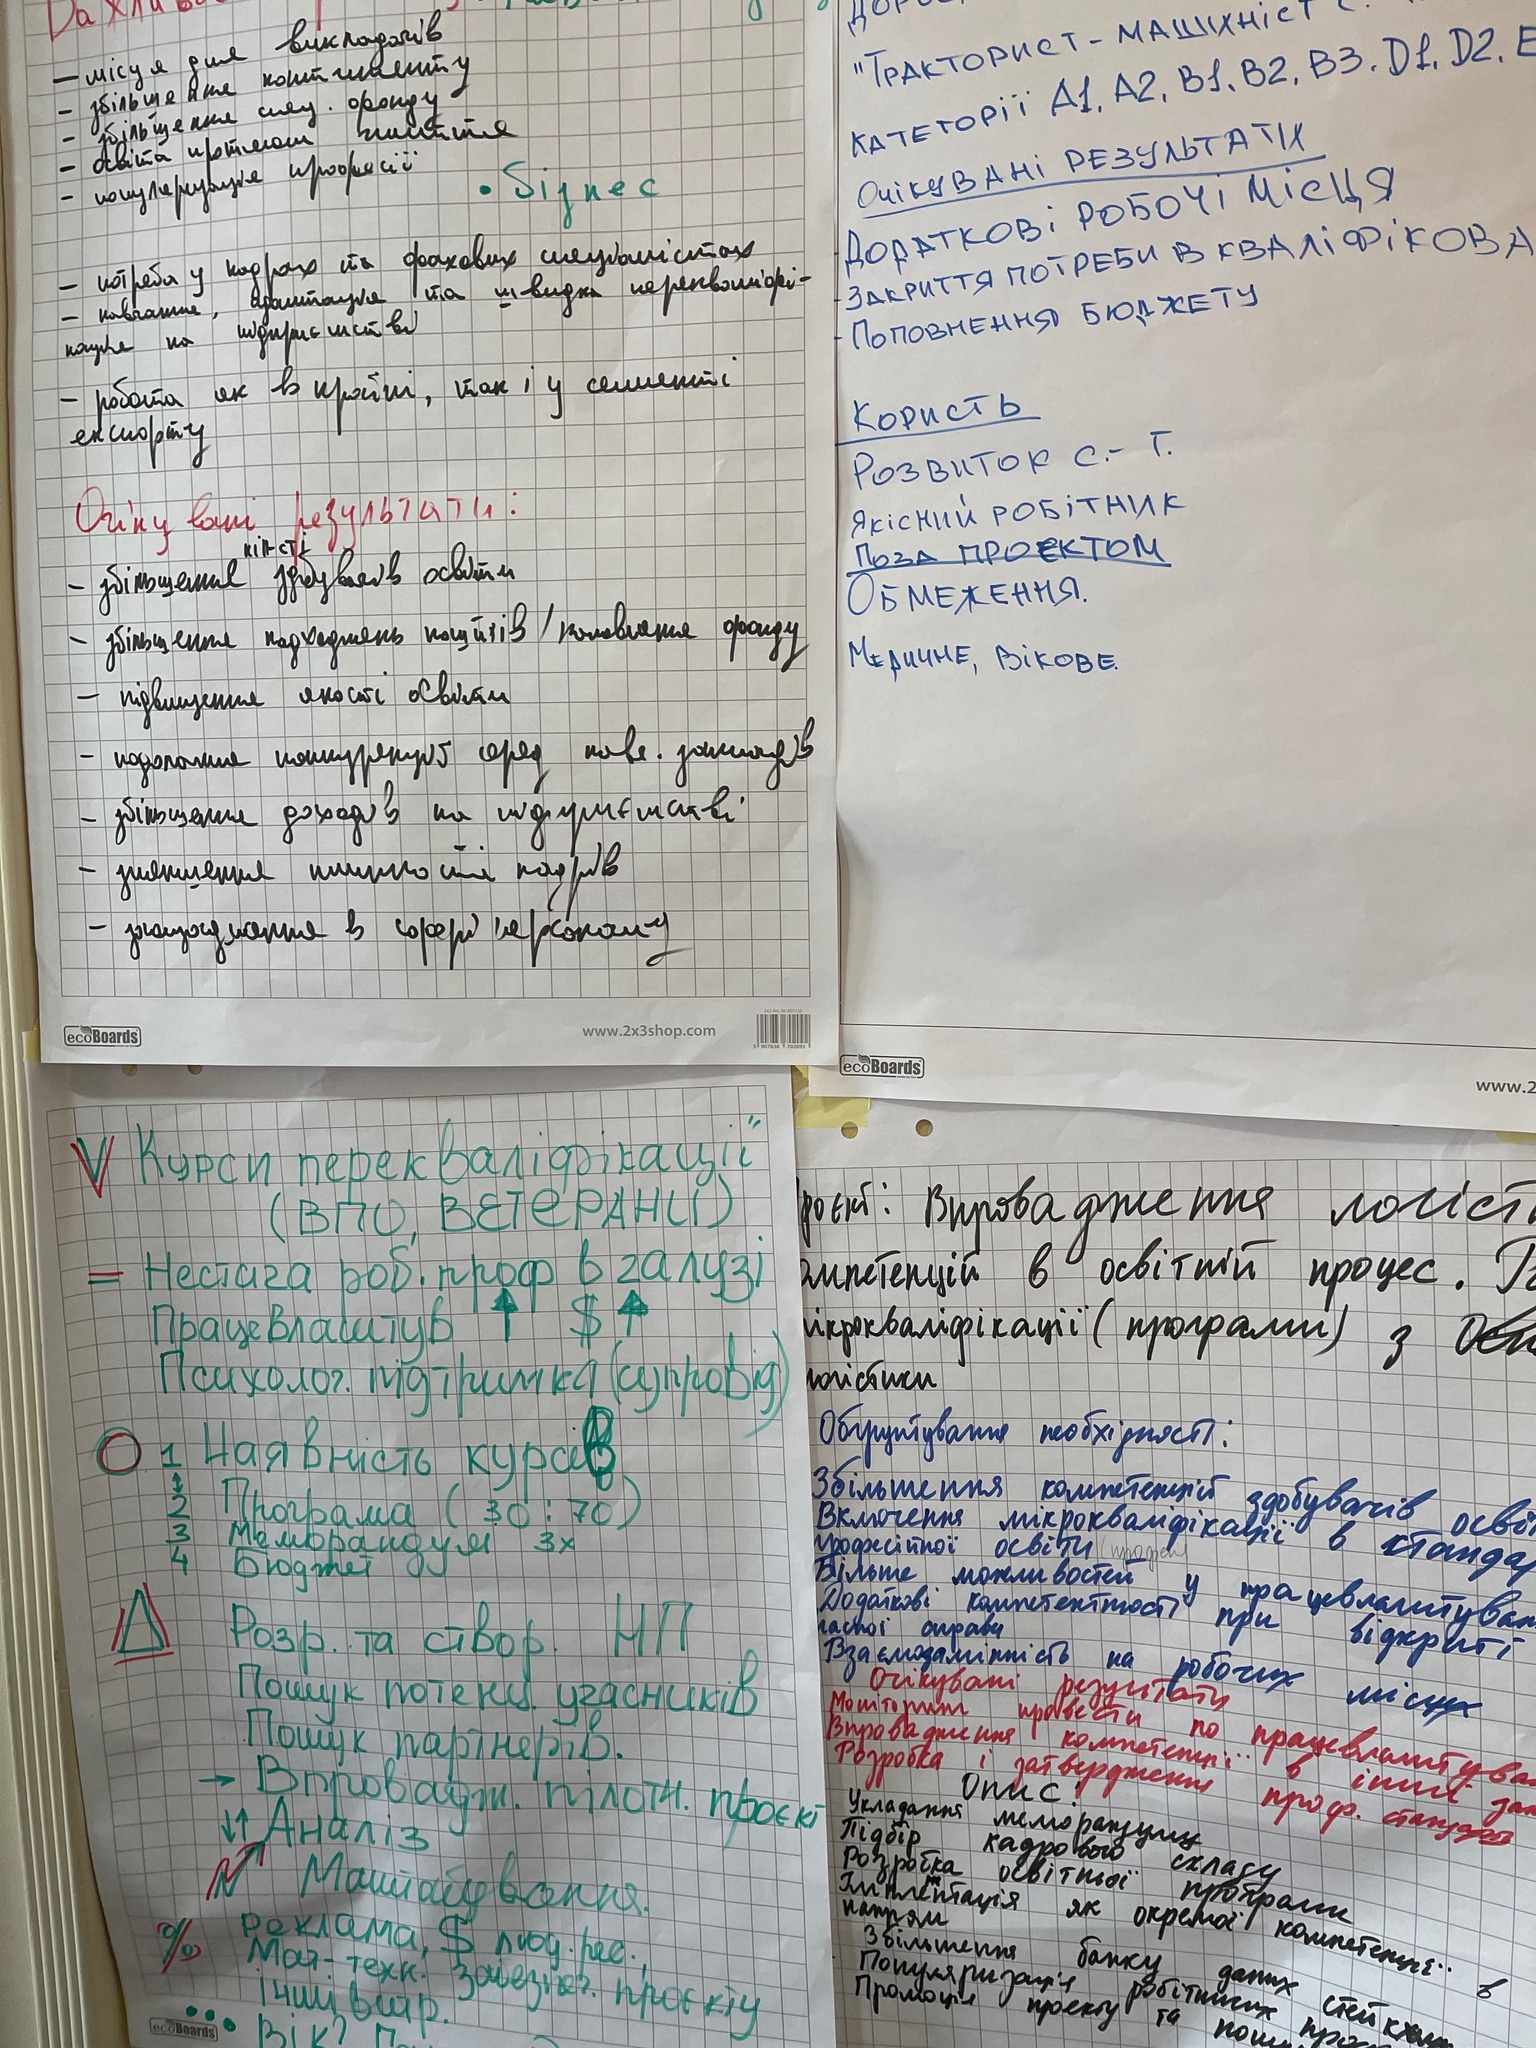 - місця для викладачів
- збільшення контингенту
- збільшення спец. фонду
- освіта протягом життя
- популяризація професії
• бізнес
- потреба у кадрах та фахових спеціалістах
- навчання, адаптація та швидка перекваліфі-
кація на підприємстві
- робота як в країні, так і у сегменті
експорту
Очікувані результати:
кіл-сті
- збільшення здобувачів освіти
- збільшення надходжень коштів/наповнення фонду
- підвищення якості освіти
- подолання конкуренції серед навч. закладів
- збільшення доходів на підприємстві
- зменшення плинності кадрів
- заощадження в сфері персоналу
ecoBoards
www.2x3shop.com
"Тракторист - машиніст с.
категорії А1, А2, В1, В2, В3, D1, D2, E
Очікувані результати
- Додаткові робочі місця
- Закриття потреби в кваліфікова
- Поповнення бюджету
Користь
Розвиток с.- г.
якісний робітник
Поза проєктом
Обмеження.
Медичне, вікове.
ecoBoards
www.2
V Курси перекваліфікації
(ВПО, ВЕТЕРАНИ)
= Нестача роб. проф в галузі
Працевлаштув ↑ $ ↑
Психолог. підтримка (супровід)
О 1 Наявність курсів
2 Програма (30 : 70)
3 Меморандум 3х
4 Бюджет
Розр. та створ. НП
Пошук потенц. учасників
Пошук партнерів.
→ Впровадж. пілотн. проєкт
↓↑ Аналіз
Масштабування.
% реклама, $ люд. рес.,
Мат- техн. забезпеч. проєкту
інші витр.
ecoBoards
Вік?
роєкт: Впровадження логіст
омпетенцій в освітній процес.
ікрокваліфікації (програми) з
логістики
Обґрунтування необхідності:
Збільшення компетенцій здобувачів осві
Включення мікрокваліфікації в станда
професійної освіти
Більше можливостей у працевлаштуван
Додаткові компетентності при відкриті
ласної справи
Взаємозамінність на робочих місцях
Очікувані результати
Моніторинг провести по працевлаштува
Впровадження компетенції в інші за
Розробка і затвердження проф. стандарт
Опис:
Укладання меморандуму
Підбір кадрового складу
Розробка освітньої програми
Імплентація як окремої компетенції в
напрям
Збільшення банку даних стейкхол
Популяризація робітничих про
Промоція проекту та пошу